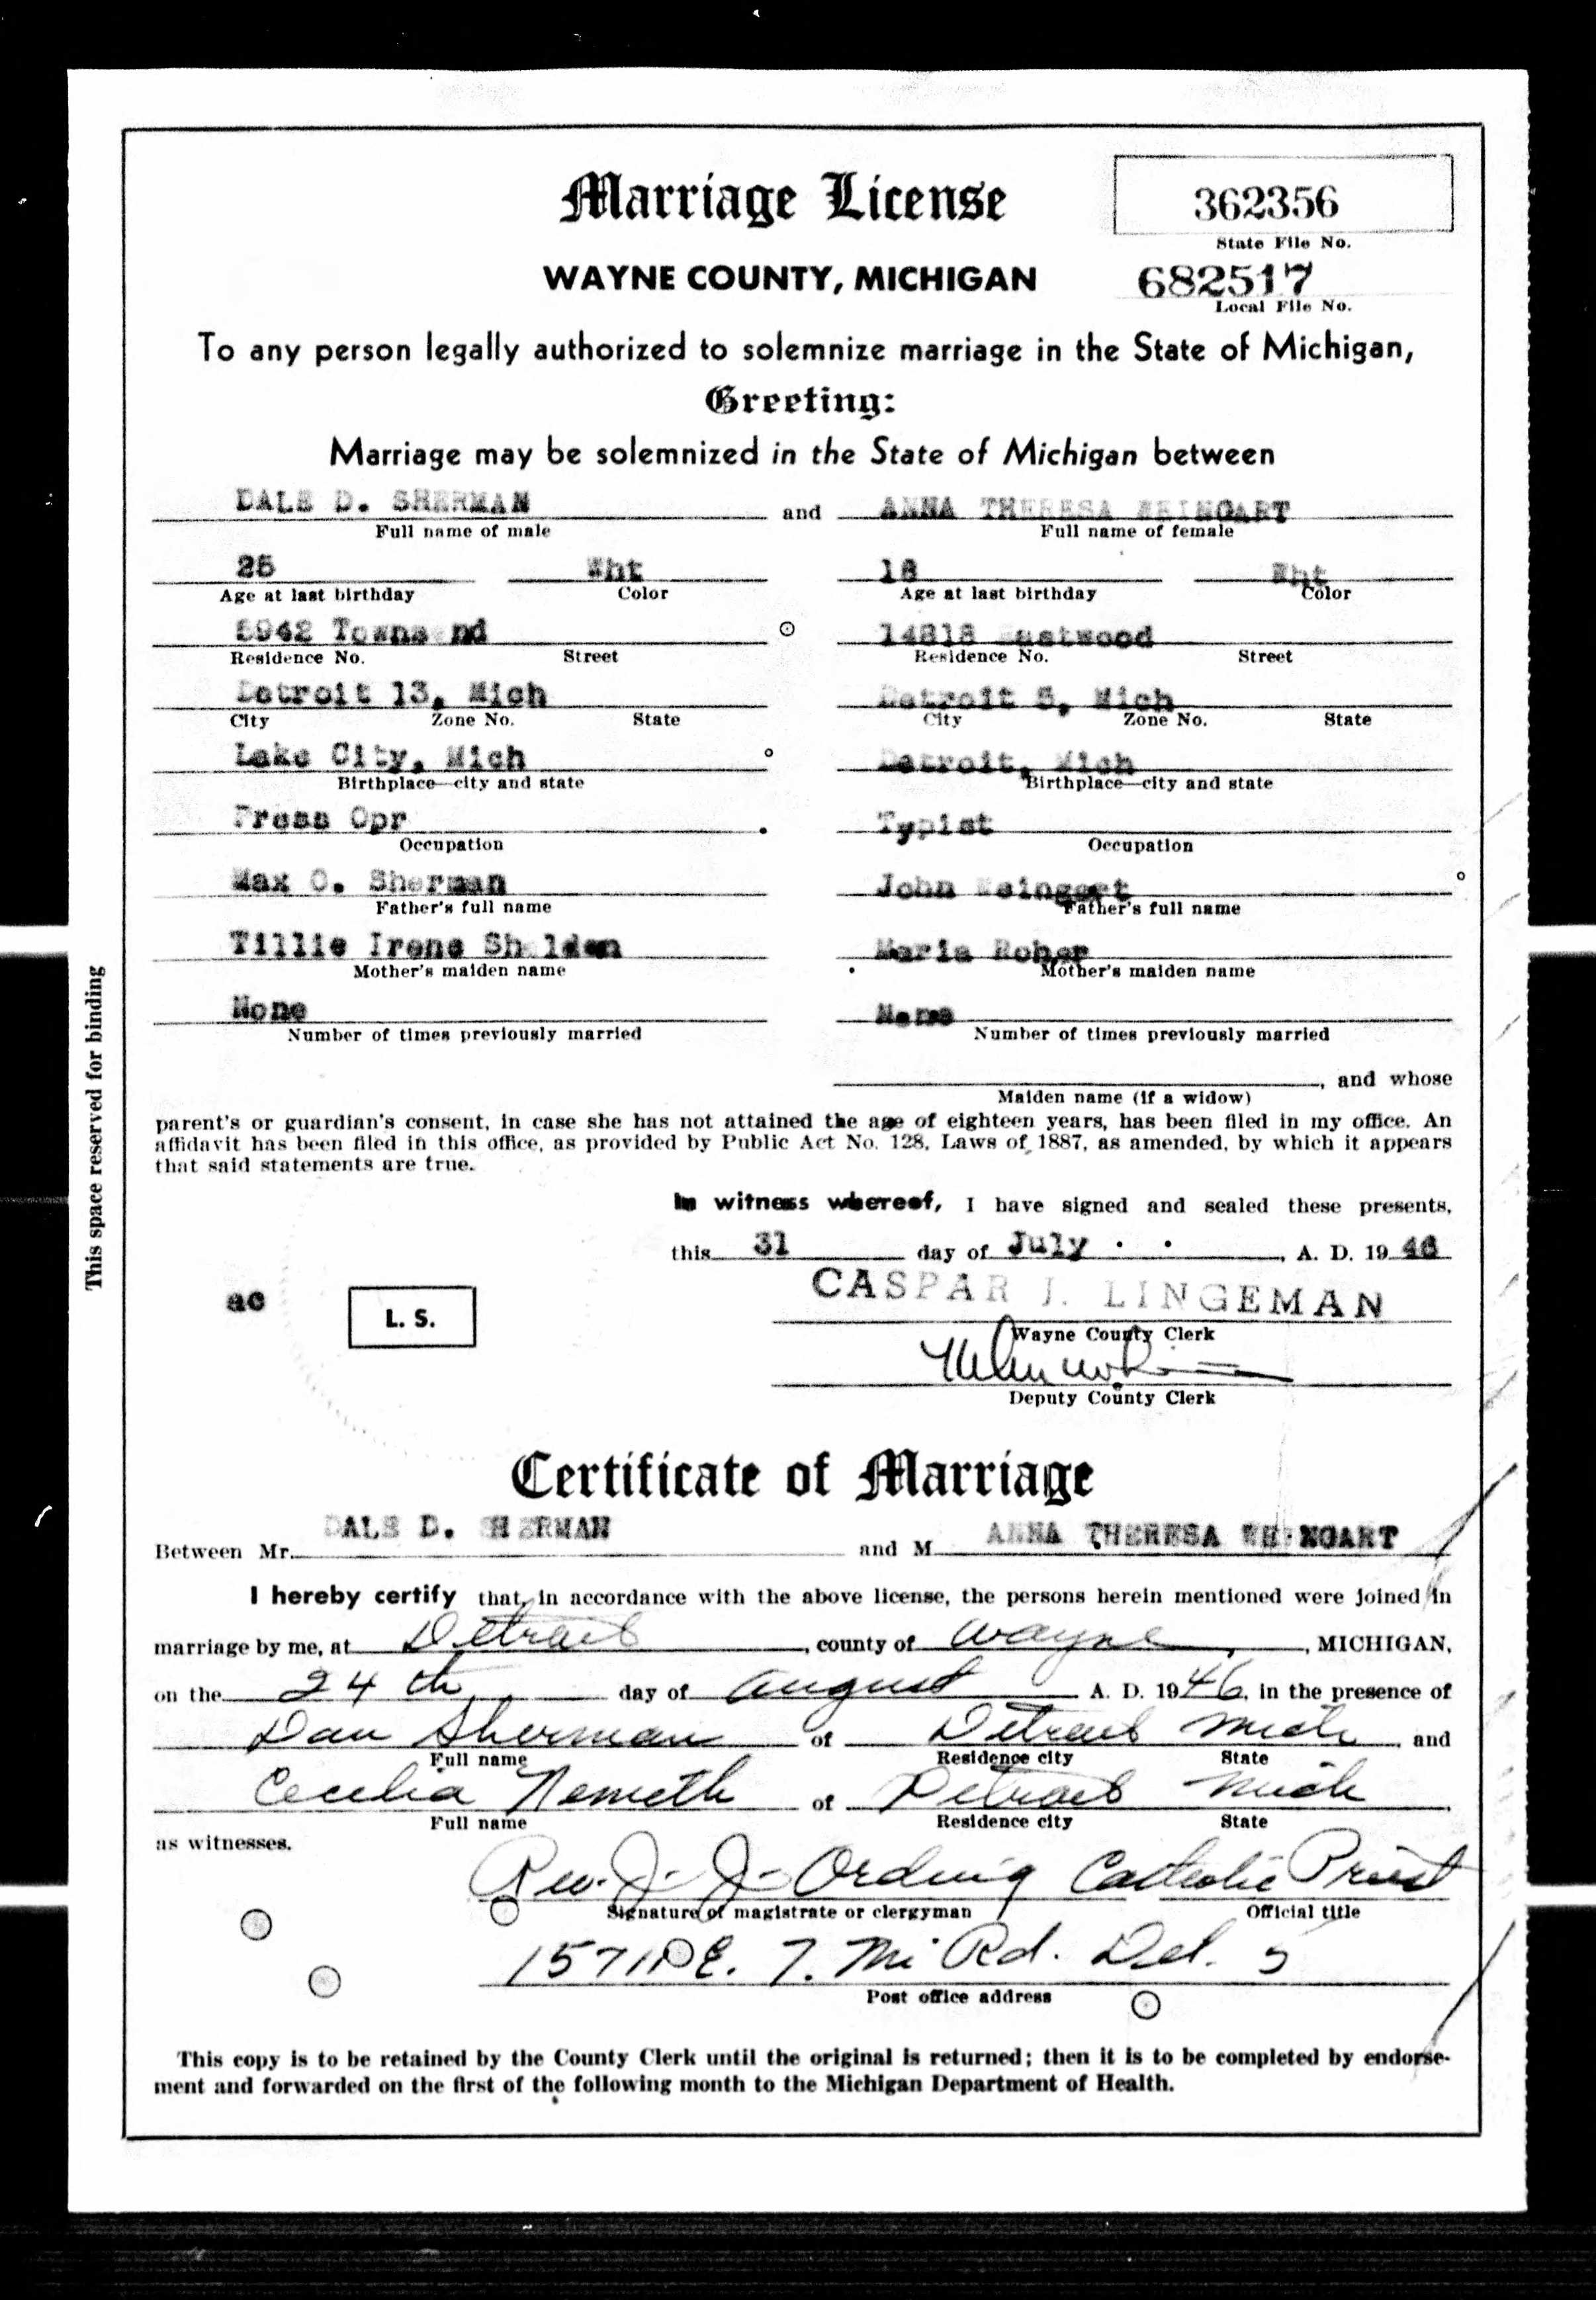 Marriage License
362356
State File No.
WAYNE COUNTY, MICHIGAN
682517
Local File No.
To any person legally authorized to solemnize marriage in the State of Michigan,
Greeting:
Marriage may be solemnized in the State of Michigan between
DALE D. SHERMAN and ANNA THERESA WEINGART
Full name of male Full name of female
25 Wht 18 Wht
Age at last birthday Color Age at last birthday Color
5942 Townsend 14818 Eastwood
Residence No. Street Residence No. Street
Detroit 13, Mich Detroit 5, Mich
City Zone No. State City Zone No. State
Lake City, Mich Detroit, Mich
Birthplace—city and state Birthplace—city and state
Press Opr Typist
Occupation Occupation
Max O. Sherman John Weingart
Father's full name Father's full name
Tillie Irene Shelden Maria Roher
Mother's maiden name Mother's maiden name
None None
Number of times previously married Number of times previously married
, and whose
Maiden name (if a widow)
parent's or guardian's consent, in case she has not attained the age of eighteen years, has been filed in my office. An
affidavit has been filed in this office, as provided by Public Act No. 128, Laws of 1887, as amended, by which it appears
that said statements are true.
In witness whereof, I have signed and sealed these presents,
this 31 day of July, A. D. 19 46
CASPAR J. LINGEMAN
Wayne County Clerk
ac
L. S.
Deputy County Clerk
Certificate of Marriage
Between Mr. DALE D. SHERMAN and M ANNA THERESA WEINGART
I hereby certify that, in accordance with the above license, the persons herein mentioned were joined in
marriage by me, at Detroit, county of Wayne, MICHIGAN,
on the 24 th day of August A. D. 1946, in the presence of
Dan Sherman of Detroit Mich, and
Full name Residence city State
Cecelia Nemeth of Detroit Mich
Full name Residence city State
as witnesses.
Rev. J. J. Ording Catholic Priest
Signature of magistrate or clergyman Official title
E. 7. Mi Rd. Det. 5
Post office address
This copy is to be retained by the County Clerk until the original is returned; then it is to be completed by endorse-
ment and forwarded on the first of the following month to the Michigan Department of Health.
This space reserved for binding